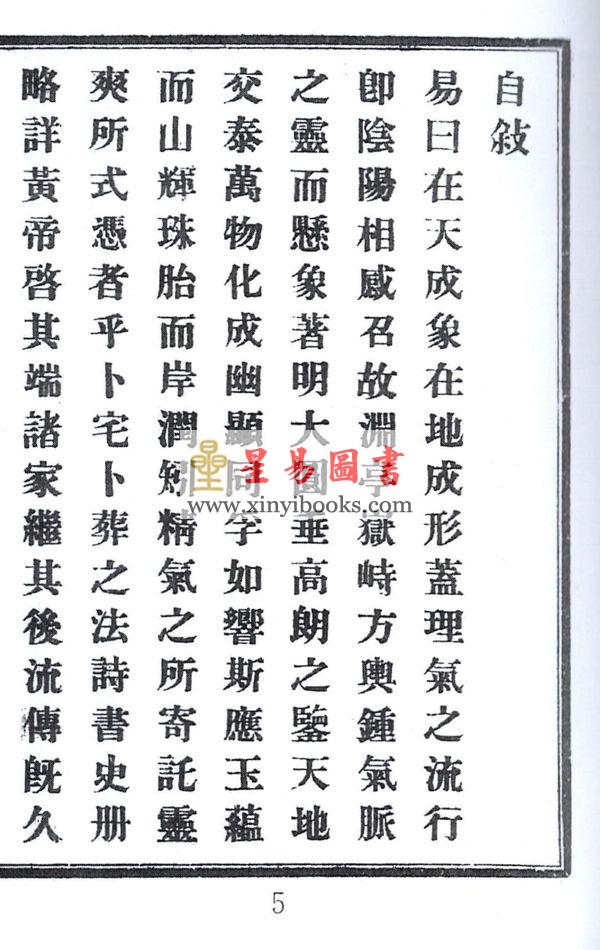 自敍
易曰在天成象在地成形蓋理氣之流行
卽陰陽相感召故淵亭嶽峙方輿鍾氣脈
之靈而懸象著明大垂高朗之鑒天地
交泰萬物化成幽顯同孚如響斯應玉蘊
而山輝珠胎而岸潤矧精氣之所寄託靈
爽所式憑者乎卜宅卜葬之法詩書史册
略詳黃帝啓其端諸家繼其後流傳旣久
星易圖書
www.xinyibooks.com
5